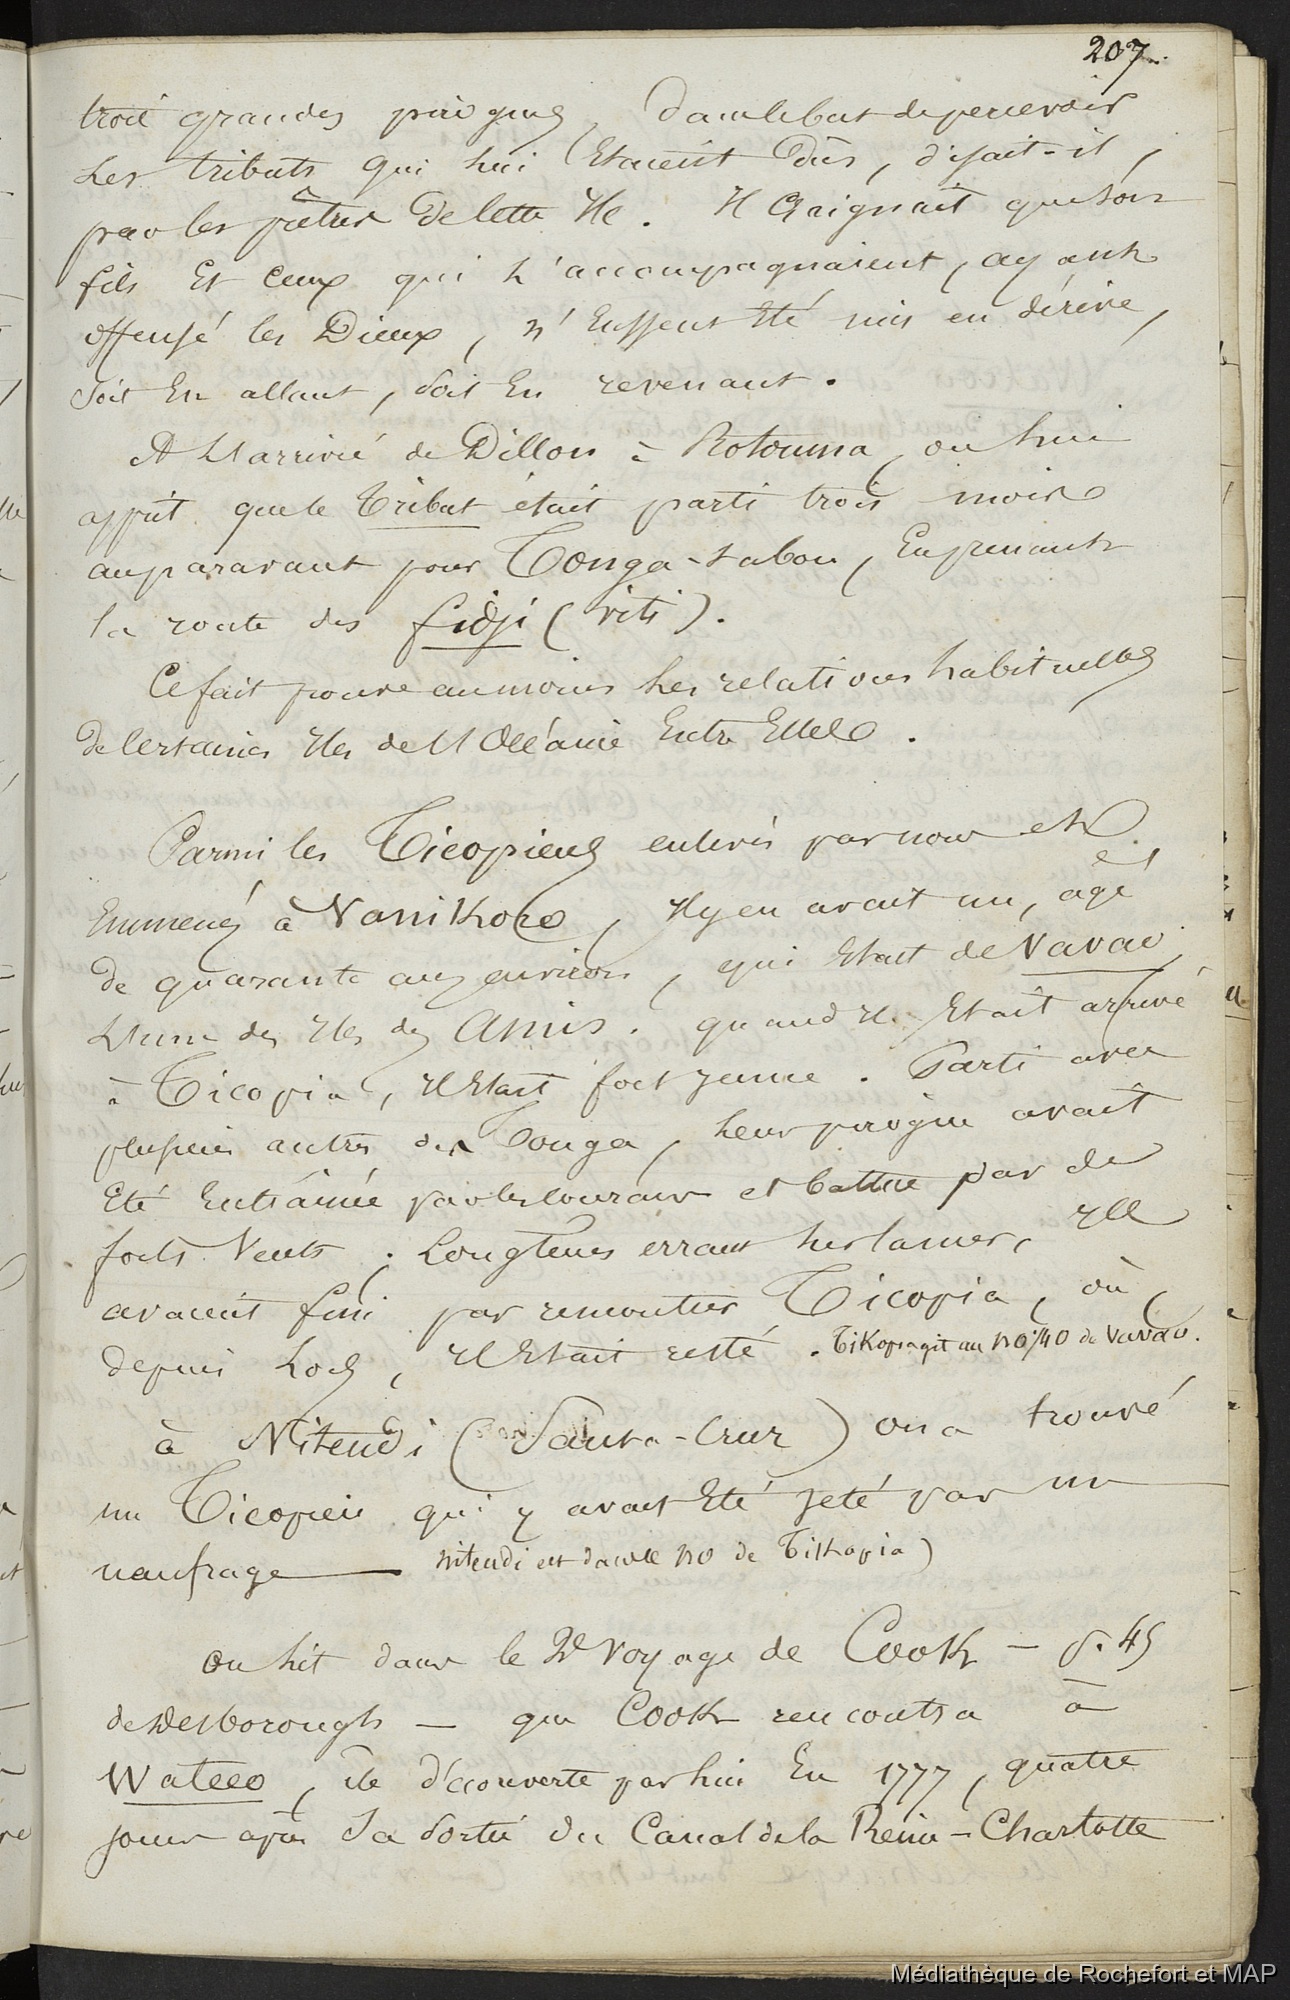 207.
trois grandes pirogues, dans le but de percevoir
les tributs qui lui étaient dûs, disait-il,
par les prêtres de cette Ile. Il craignait que son
fils et ceux qui l'accompagnaient, ayant
offensé les Dieux, n'eussent été mis en dérive,
soit en allant, soit en revenant.
A l'arrivée de Dillon à Rotouma, on lui
apprit que le Tribut était parti trois mois
auparavant pour Tonga-tabou, en prenant
la route des fidji (viti).
Ce fait prouve au moins les relations habituelles
de certaines Iles de l'Océanie entre Elles.
Parmi les Ticopiens enlevés par nous et
Emmenés à Vanikoro, il y en avait un, âgé
de quarante ans environ, qui était de Vavao,
l'une des Iles des Amis. quand il était arrivé
à Ticopia, il était fort jeune. Parti avec
plusieurs autres de Tonga, leur pirogue avait
été entrainée par les courans et battue par de
forts vents; longtems errans sur la mer, ils
avaient fini par rencontrer Ticopia, où,
depuis lors, il était resté. Tikopia git au NO 1/4 O de Vavao.
à Nitendi (Santa-Cruz) on a trouvé
un Ticopien qui y avait été jeté par un
naufrage — Nitendi est dans le NO de Tikopia)
On lit dans le 2e voyage de Cook — p. 45
de Desborough — que Cook rencontra à
Wateeo, île découverte par lui en 1777, quatre
jours après sa sortie du Canal de la Reine-Charlotte
Médiathèque de Rochefort et MAP